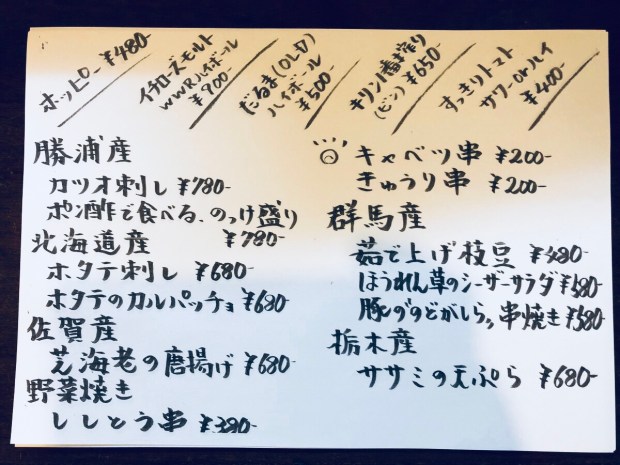 ホッピー ¥480-
イチローズモルト
WWRハイボール
¥900-
だるま(OLD)
ハイボール
¥500-
キリン一番搾り
(ビン) ¥650-
すっきりトマト
サワーorハイ
¥400-
勝浦産
カツオ刺し ¥780-
ポン酢で食べる、のっけ盛り
¥780-
北海道産
ホタテ刺し ¥680-
ホタテのカルパッチョ ¥680-
佐賀産
芝海老の唐揚げ ¥680-
野菜焼き
ししとう串 ¥380-
キャベツ串 ¥200-
きゅうり串 ¥200-
群馬産
茹で上げ枝豆 ¥380-
ほうれん草のシーザーサラダ ¥580-
豚ののどがしら 串焼き ¥580-
栃木産
ササミの天ぷら ¥680-